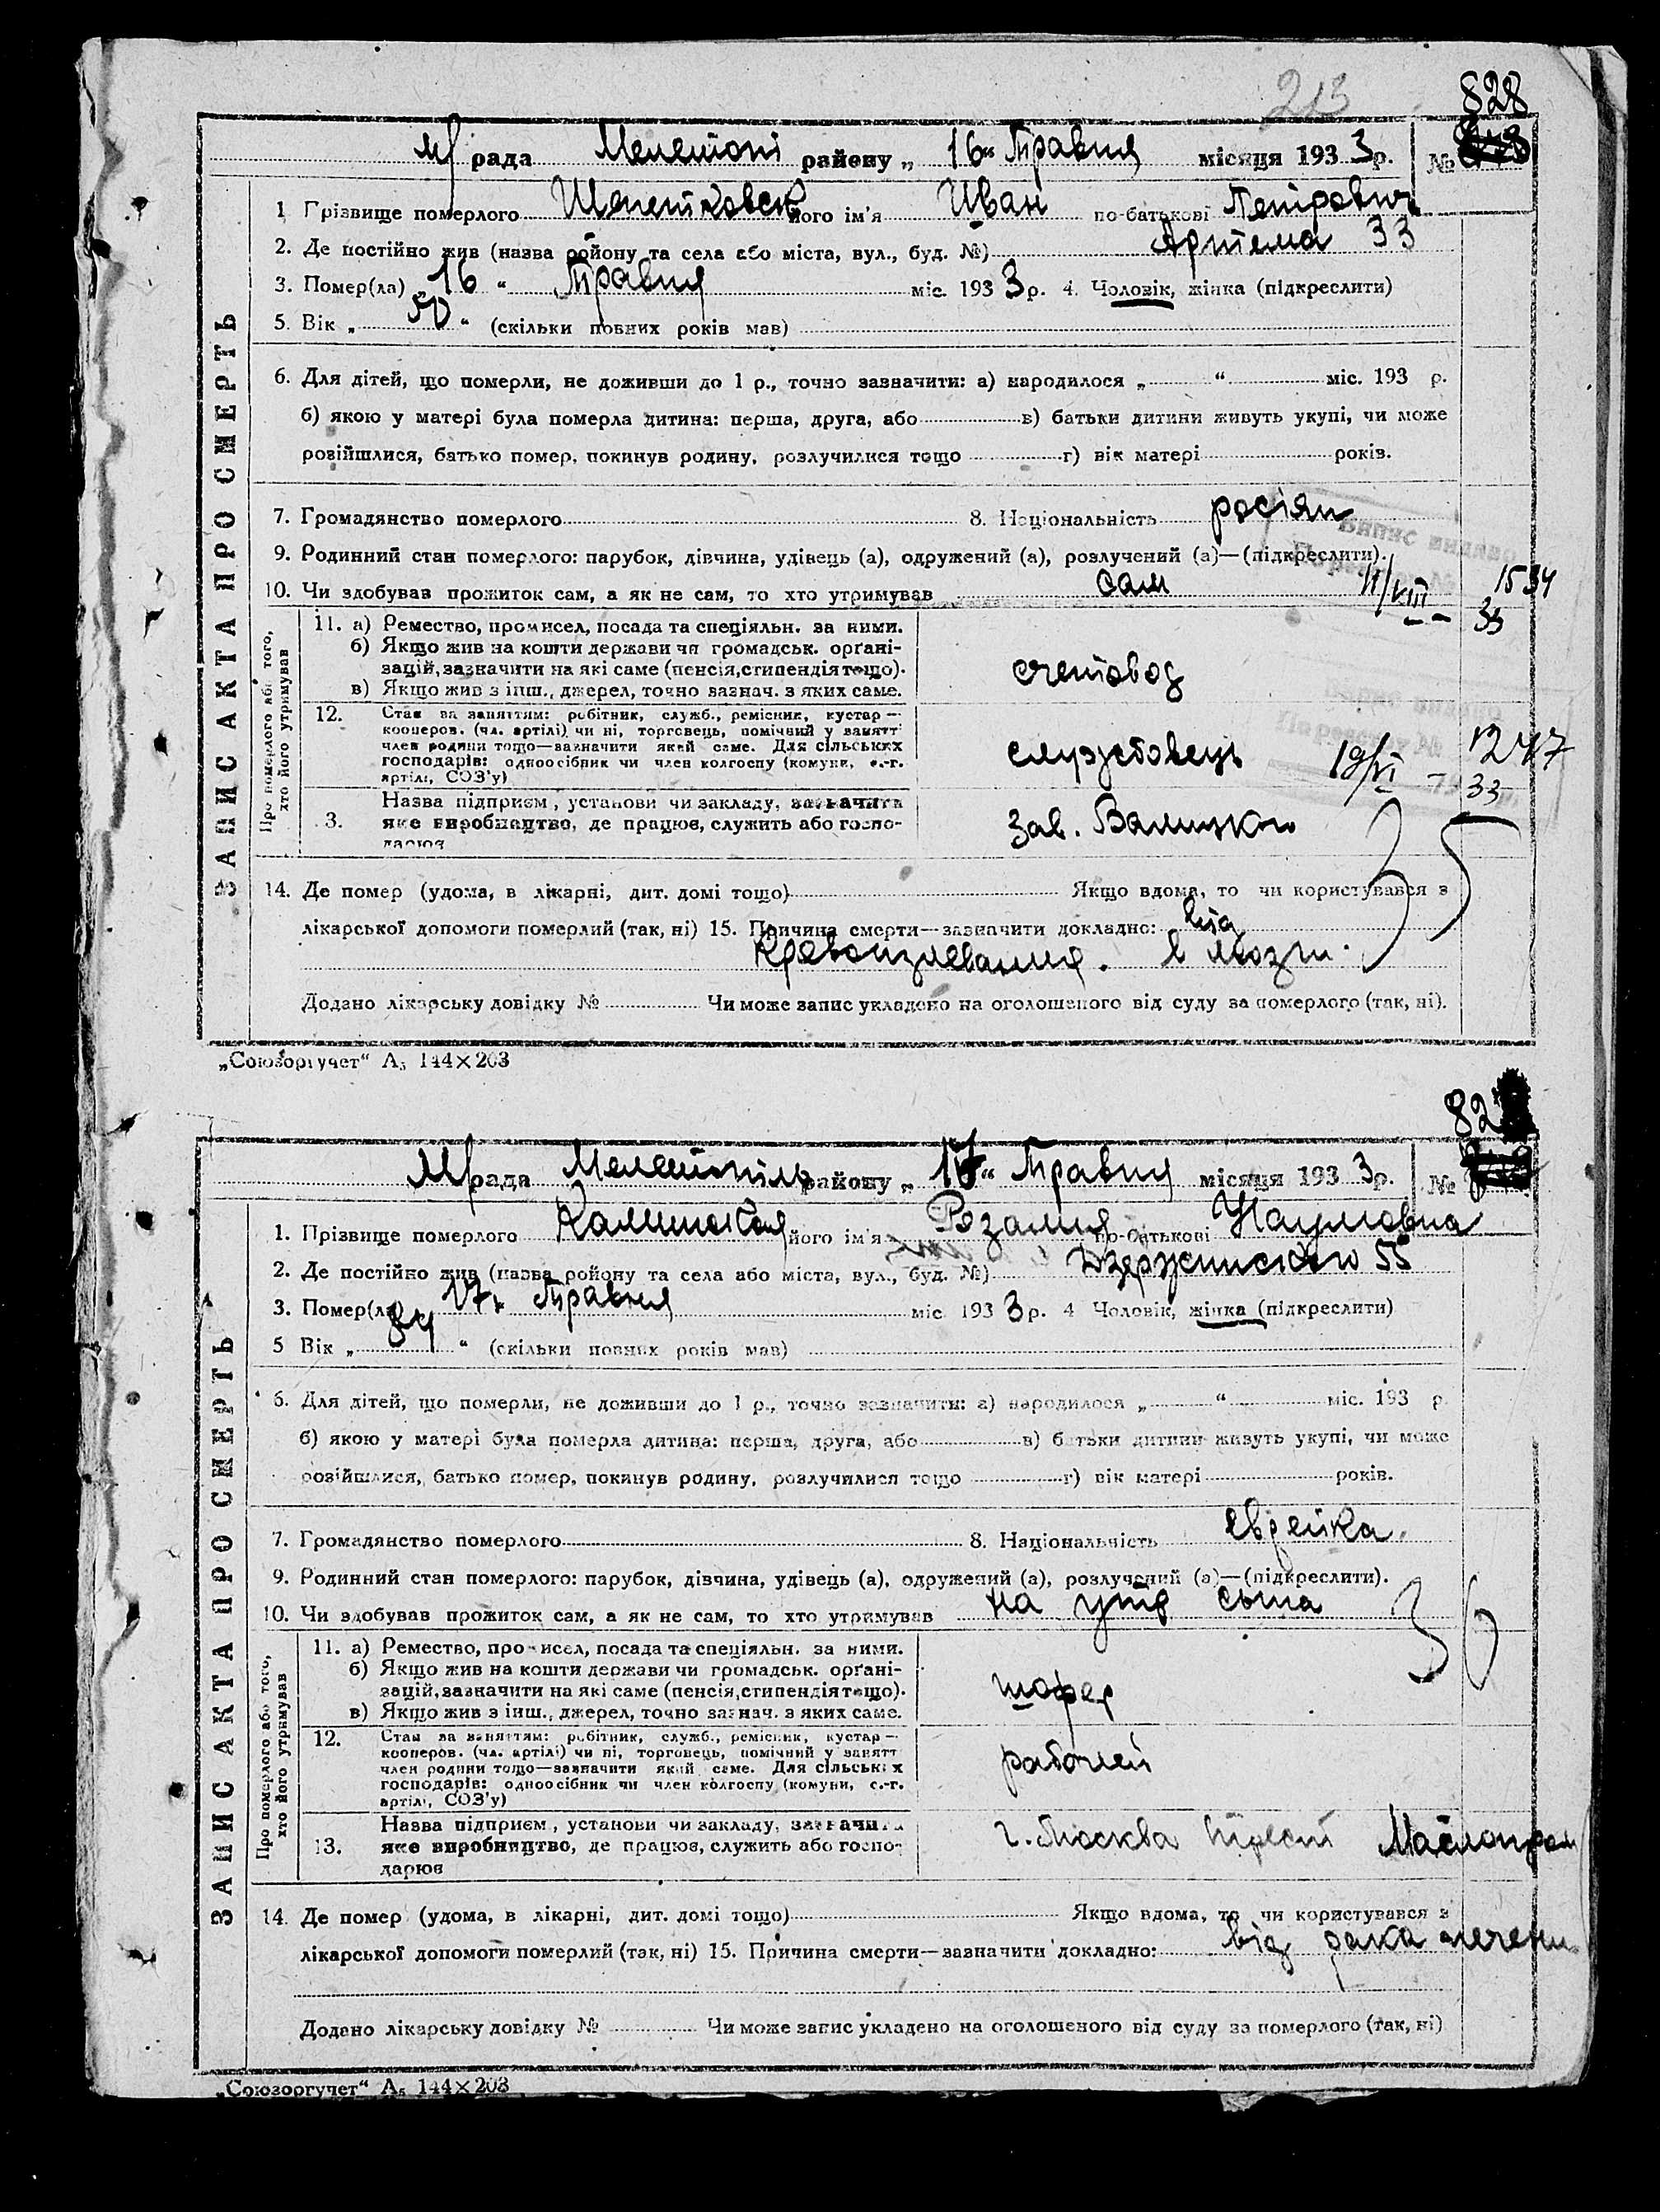 213
828
М/рада Мелетопі району „ 16 “ Травня місяця 193 3 р. №
1. Прізвище померлого Шепетковск його ім'я Иван по-батькові Петрович
2. Де постійно жив (назва району та села або міста, вул., буд. №) Артема 33
3. Помер(ла) „ 16 “ Травня міс. 193 3 р. 4. Чоловік, жінка (підкреслити)
5. Вік „ 50 “ (скільки повних років мав)
6. Для дітей, що померли, не доживши до 1 р., точно зазначити: а) народилося „ “ міс. 193 р.
б) якою у матері була померла дитина: перша, друга, або в) батьки дитини живуть укупі, чи може
розійшлися, батько помер, покинув родину, розлучилися тощо г) вік матері років.
7. Громадянство померлого 8. Національність росіян
Випис видано
9. Родинний стан померлого: парубок, дівчина, удівець (а), одружений (а), розлучений (а)—(підкреслити).
10. Чи здобував прожиток сам, а як не сам, то хто утримував сам 11/VIII – 33 1534
ЗАПИС АКТА ПРО СМЕРТЬ
Про померлого або того, хто його утримував
11. а) Ремество, промисел, посада та спеціяльн. за ними.
б) Якщо жив на кошти держави чи громадськ. орґані-
зацій, зазначити на які саме (пенсія, стипендія тощо).
в) Якщо жив з інш., джерел, точно зазнач. з яких саме.
счетовод
Випис видано
По реєстру №
12. Стан за заняттям: робітник, служб., ремісник, кустар—
кооперов. (чл. артілі) чи ні, торговець, помічний у занятт
член родини тощо—зазначити який саме. Для сільських
господарів: одноосібник чи член колгоспу (комуни, с.-г.
артілі, СОЗ'у)
службовець 19/VI – 33 1247
3. Назва підприєм., установи чи закладу, зазначити
яке виробництво, де працює, служить або госпо-
дарює
зав. 
35
14. Де помер (удома, в лікарні, дит. домі тощо) Якщо вдома, то чи користувався з
лікарської допомоги померлий (так, ні) 15. Причина смерти—зазначити докладно: від
кровоизлевания. в мозги.
Додано лікарську довідку № Чи може запис укладено на оголошеного від суду за померлого (так, ні).
„Союзоргучет“ А₅ 144×203
82
М/рада Мелетопіль району „ 17 “ Травня місяця 193 3 р. №
1. Прізвище померлого Калинская його ім'я Розалия по-батькові Наумовна
2. Де постійно жив (назва району та села або міста, вул., буд. №) Дзержинского 55
3. Помер(ла) 17 “ Травня міс 193 3 р. 4 Чоловік, жінка (підкреслити)
5 Вік „ 84 “ (скільки повних років мав)
6. Для дітей, що померли, не доживши до 1 р., точно зазначити: а) народилося „ “ міс. 193 р.
б) якою у матері була померла дитина: перша, друга, або в) батьки дитини живуть укупі, чи може
розійшлися, батько помер, покинув родину, розлучилися тощо г) вік матері років.
7. Громадянство померлого 8. Національність еврейка.
9. Родинний стан померлого: парубок, дівчина, удівець (а), одружений (а), розлучений (а)—(підкреслити).
10. Чи здобував прожиток сам, а як не сам, то хто утримував на утр сына
36
ЗАПИС АКТА ПРО СМЕРТЬ
Про померлого або того, хто його утримував
11. а) Ремество, промисел, посада та спеціяльн. за ними.
б) Якщо жив на кошти держави чи громадськ. орґані-
зацій, зазначити на які саме (пенсія, стипендія тощо).
в) Якщо жив з інш., джерел, точно зазнач. з яких саме.
шофер
12. Стан за заняттям: робітник, служб., ремісник, кустар—
кооперов. (чл. артілі) чи ні, торговець, помічний у занятт
член родини тощо—зазначити який саме. Для сільських
господарів: одноосібник чи член колгоспу (комуни, с.-г.
артілі, СОЗ'у)
рабочей
13. Назва підприєм., установи чи закладу, зазначити
яке виробництво, де працює, служить або госпо-
дарює
г. Москва трест Маслопром
14. Де помер (удома, в лікарні, дит. домі тощо) Якщо вдома, то чи користувався з
лікарської допомоги померлий (так, ні) 15. Причина смерти—зазначити докладно: від рака печени
Додано лікарську довідку № Чи може запис укладено на оголошеного від суду за померлого (так, ні)
„Союзоргучет“ А₅ 144×203